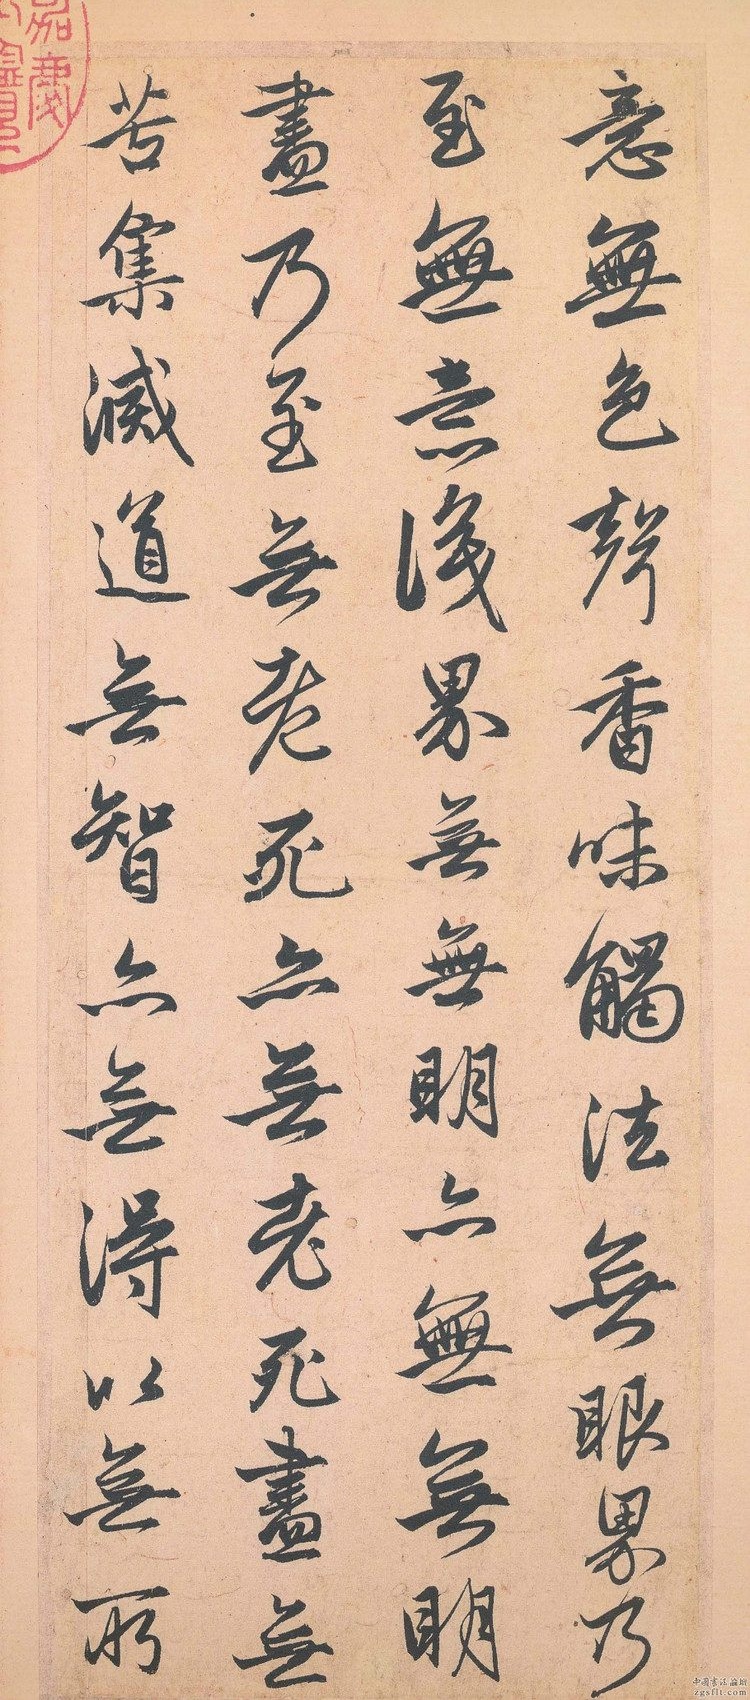 意無色聲香味觸法無眼界乃
至無意識界無無明亦無無明
盡乃至無老死亦無老死盡無
苦集滅道無智亦無得以無所
嘉慶
中國書法論壇
zgsflt.com